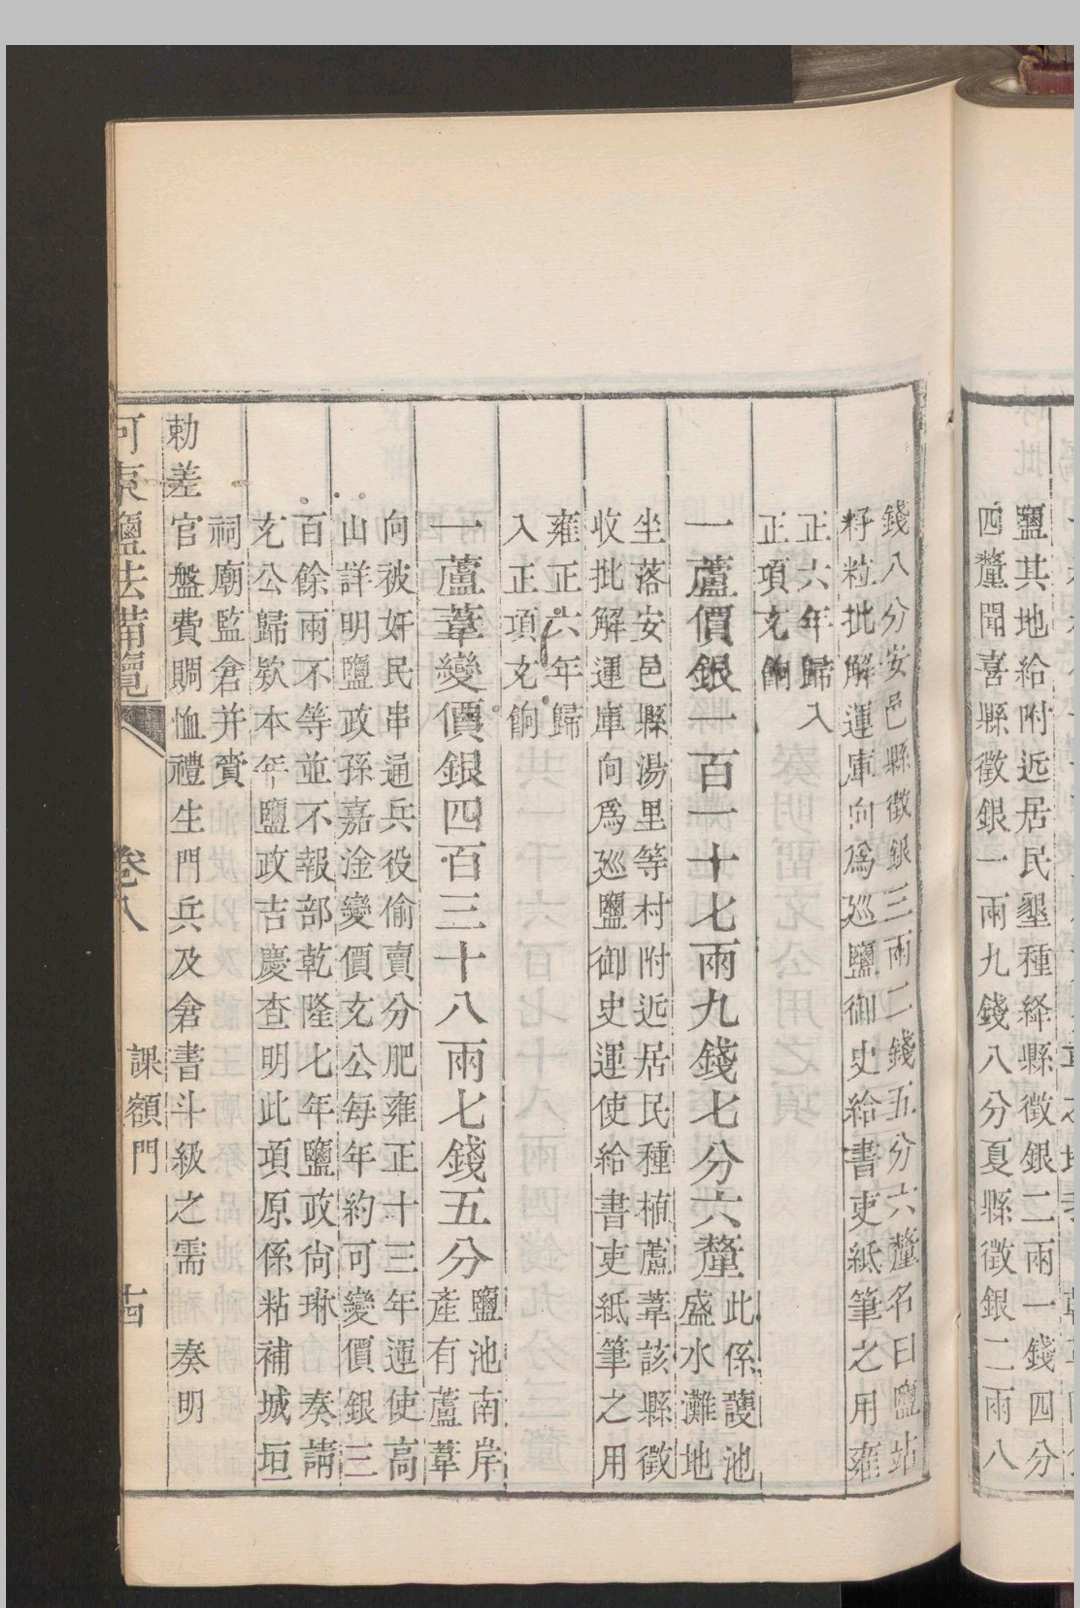 鹽其地給附近居民墾種絳縣徵銀二兩一錢四分
四釐聞喜縣徵銀一兩九錢八分夏縣徵銀二兩八
錢八分安邑縣徵銀三兩二錢五分六釐名曰鹽站
籽粒批解運庫向爲廵鹽御史給書吏紙筆之用雍
正六年歸入
正項充餉
一蘆價銀一百一十七兩九錢七分六釐
此係護池
盛水灘地
坐落安邑縣湯里等村附近居民種植蘆葦該縣徵
收批解運庫向爲廵鹽御史運使給書吏紙筆之用
雍正六年歸
入正項充餉
一蘆葦變價銀四百三十八兩七錢五分
鹽池南岸
產有蘆葦
向被奸民串通兵役偷賣分肥雍正十三年運使高
山詳明鹽政孫嘉淦變價充公每年約可變價銀三
百餘兩不等並不報部乾隆七年鹽政尙琳奏請
充公歸欵本年鹽政吉慶查明此項原係粘補城垣
祠廟監倉并賫
勅差官盤費賙恤禮生門兵及倉書斗級之需奏明
河東鹽法備覽 卷八 課額門 十四